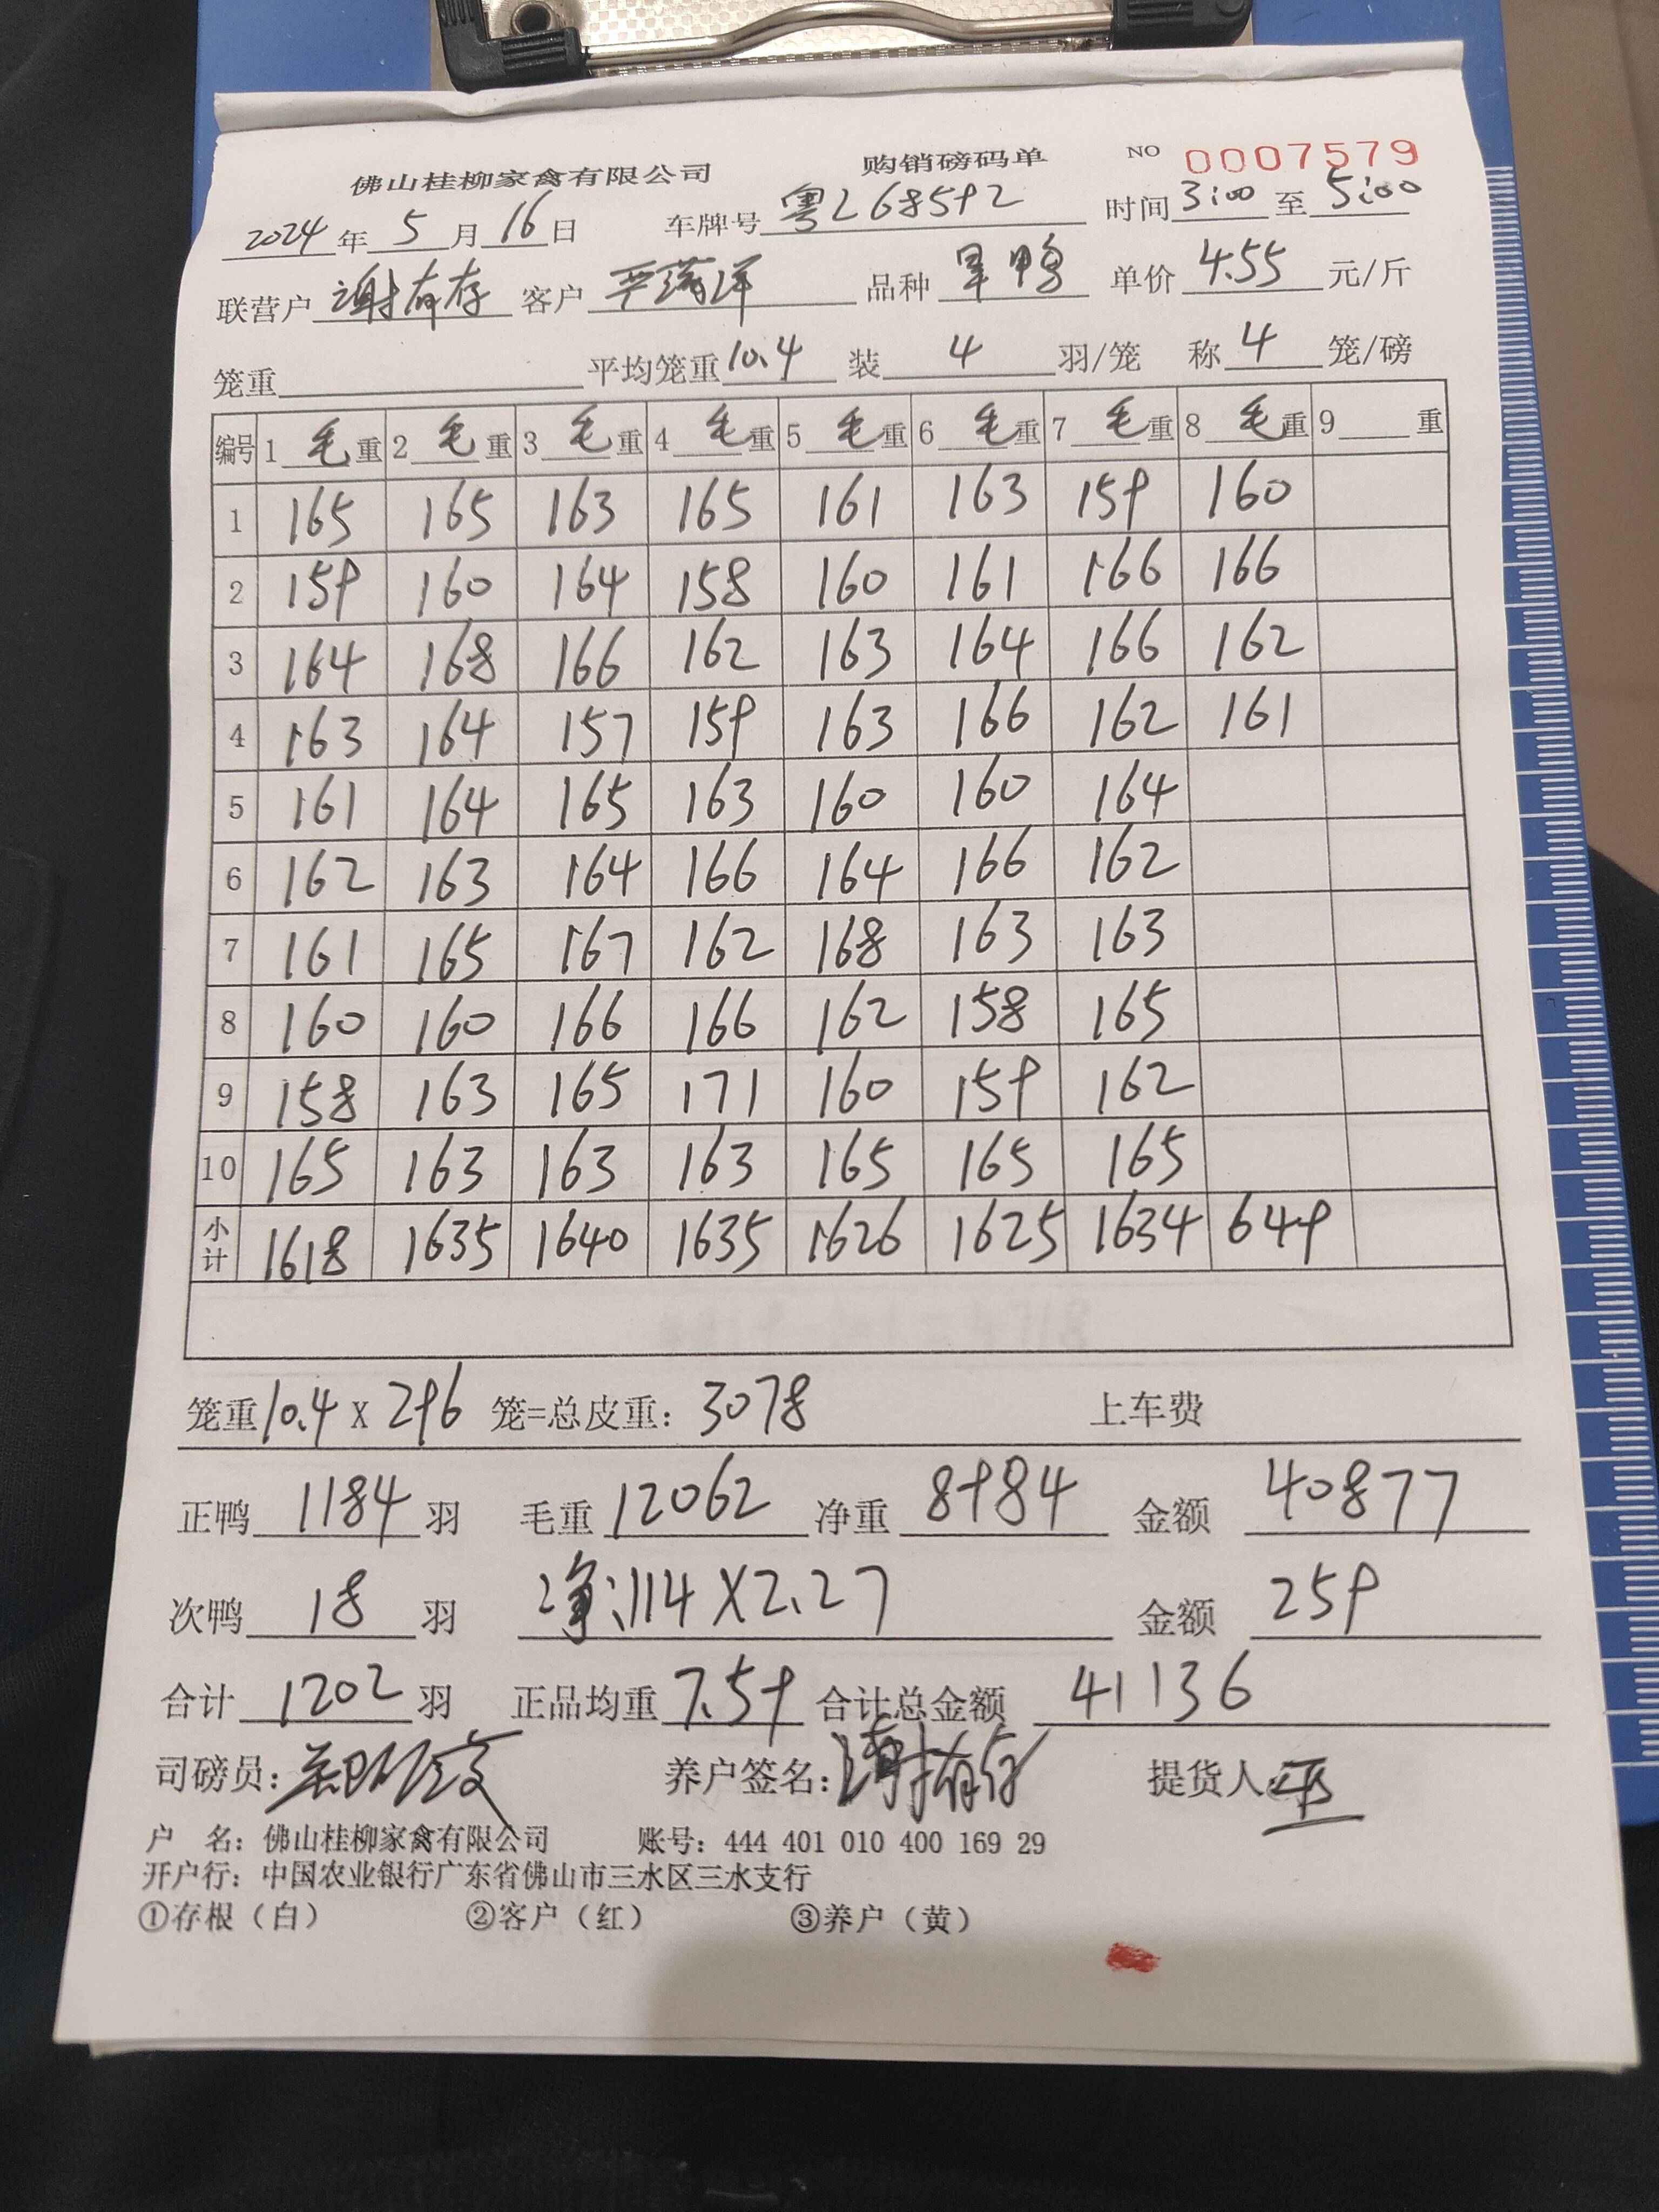 佛山桂柳家禽有限公司 购销磅码单 NO 0007579
2024 年 5 月 16 日 车牌号 粤L68592 时间 3:00 至 5:00
联营户 谢有存 客户 严 洋 品种 旱鸭 单价 4.55 元/斤
笼重 平均笼重 10.4 装 4 羽/笼 称 4 笼/磅
编号 1 毛 重 2 毛 重 3 毛 重 4 毛 重 5 毛 重 6 毛 重 7 毛 重 8 毛 重 9 重
1 165 165 163 165 161 163 159 160
2 159 160 164 158 160 161 166 166
3 164 168 166 162 163 164 166 162
4 163 164 157 159 163 166 162 161
5 161 164 165 163 160 160 164
6 162 163 164 166 164 166 162
7 161 165 167 162 168 163 163
8 160 160 166 166 162 158 165
9 158 163 165 171 160 159 162
10 165 163 163 163 165 165 165
小计 1618 1635 1640 1635 1626 1625 1634 649
笼重 10.4 X 296 笼=总皮重: 3078 上车费
正鸭 1184 羽 毛重 12062 净重 8984 金额 40877
次鸭 18 羽 净:114 X 2.27 金额 259
合计 1202 羽 正品均重 7.59 合计总金额 41136
司磅员: 养户签名: 谢有存 提货人
户 名: 佛山桂柳家禽有限公司 账号: 444 401 010 400 169 29
开户行: 中国农业银行广东省佛山市三水区三水支行
①存根（白） ②客户（红） ③养户（黄）